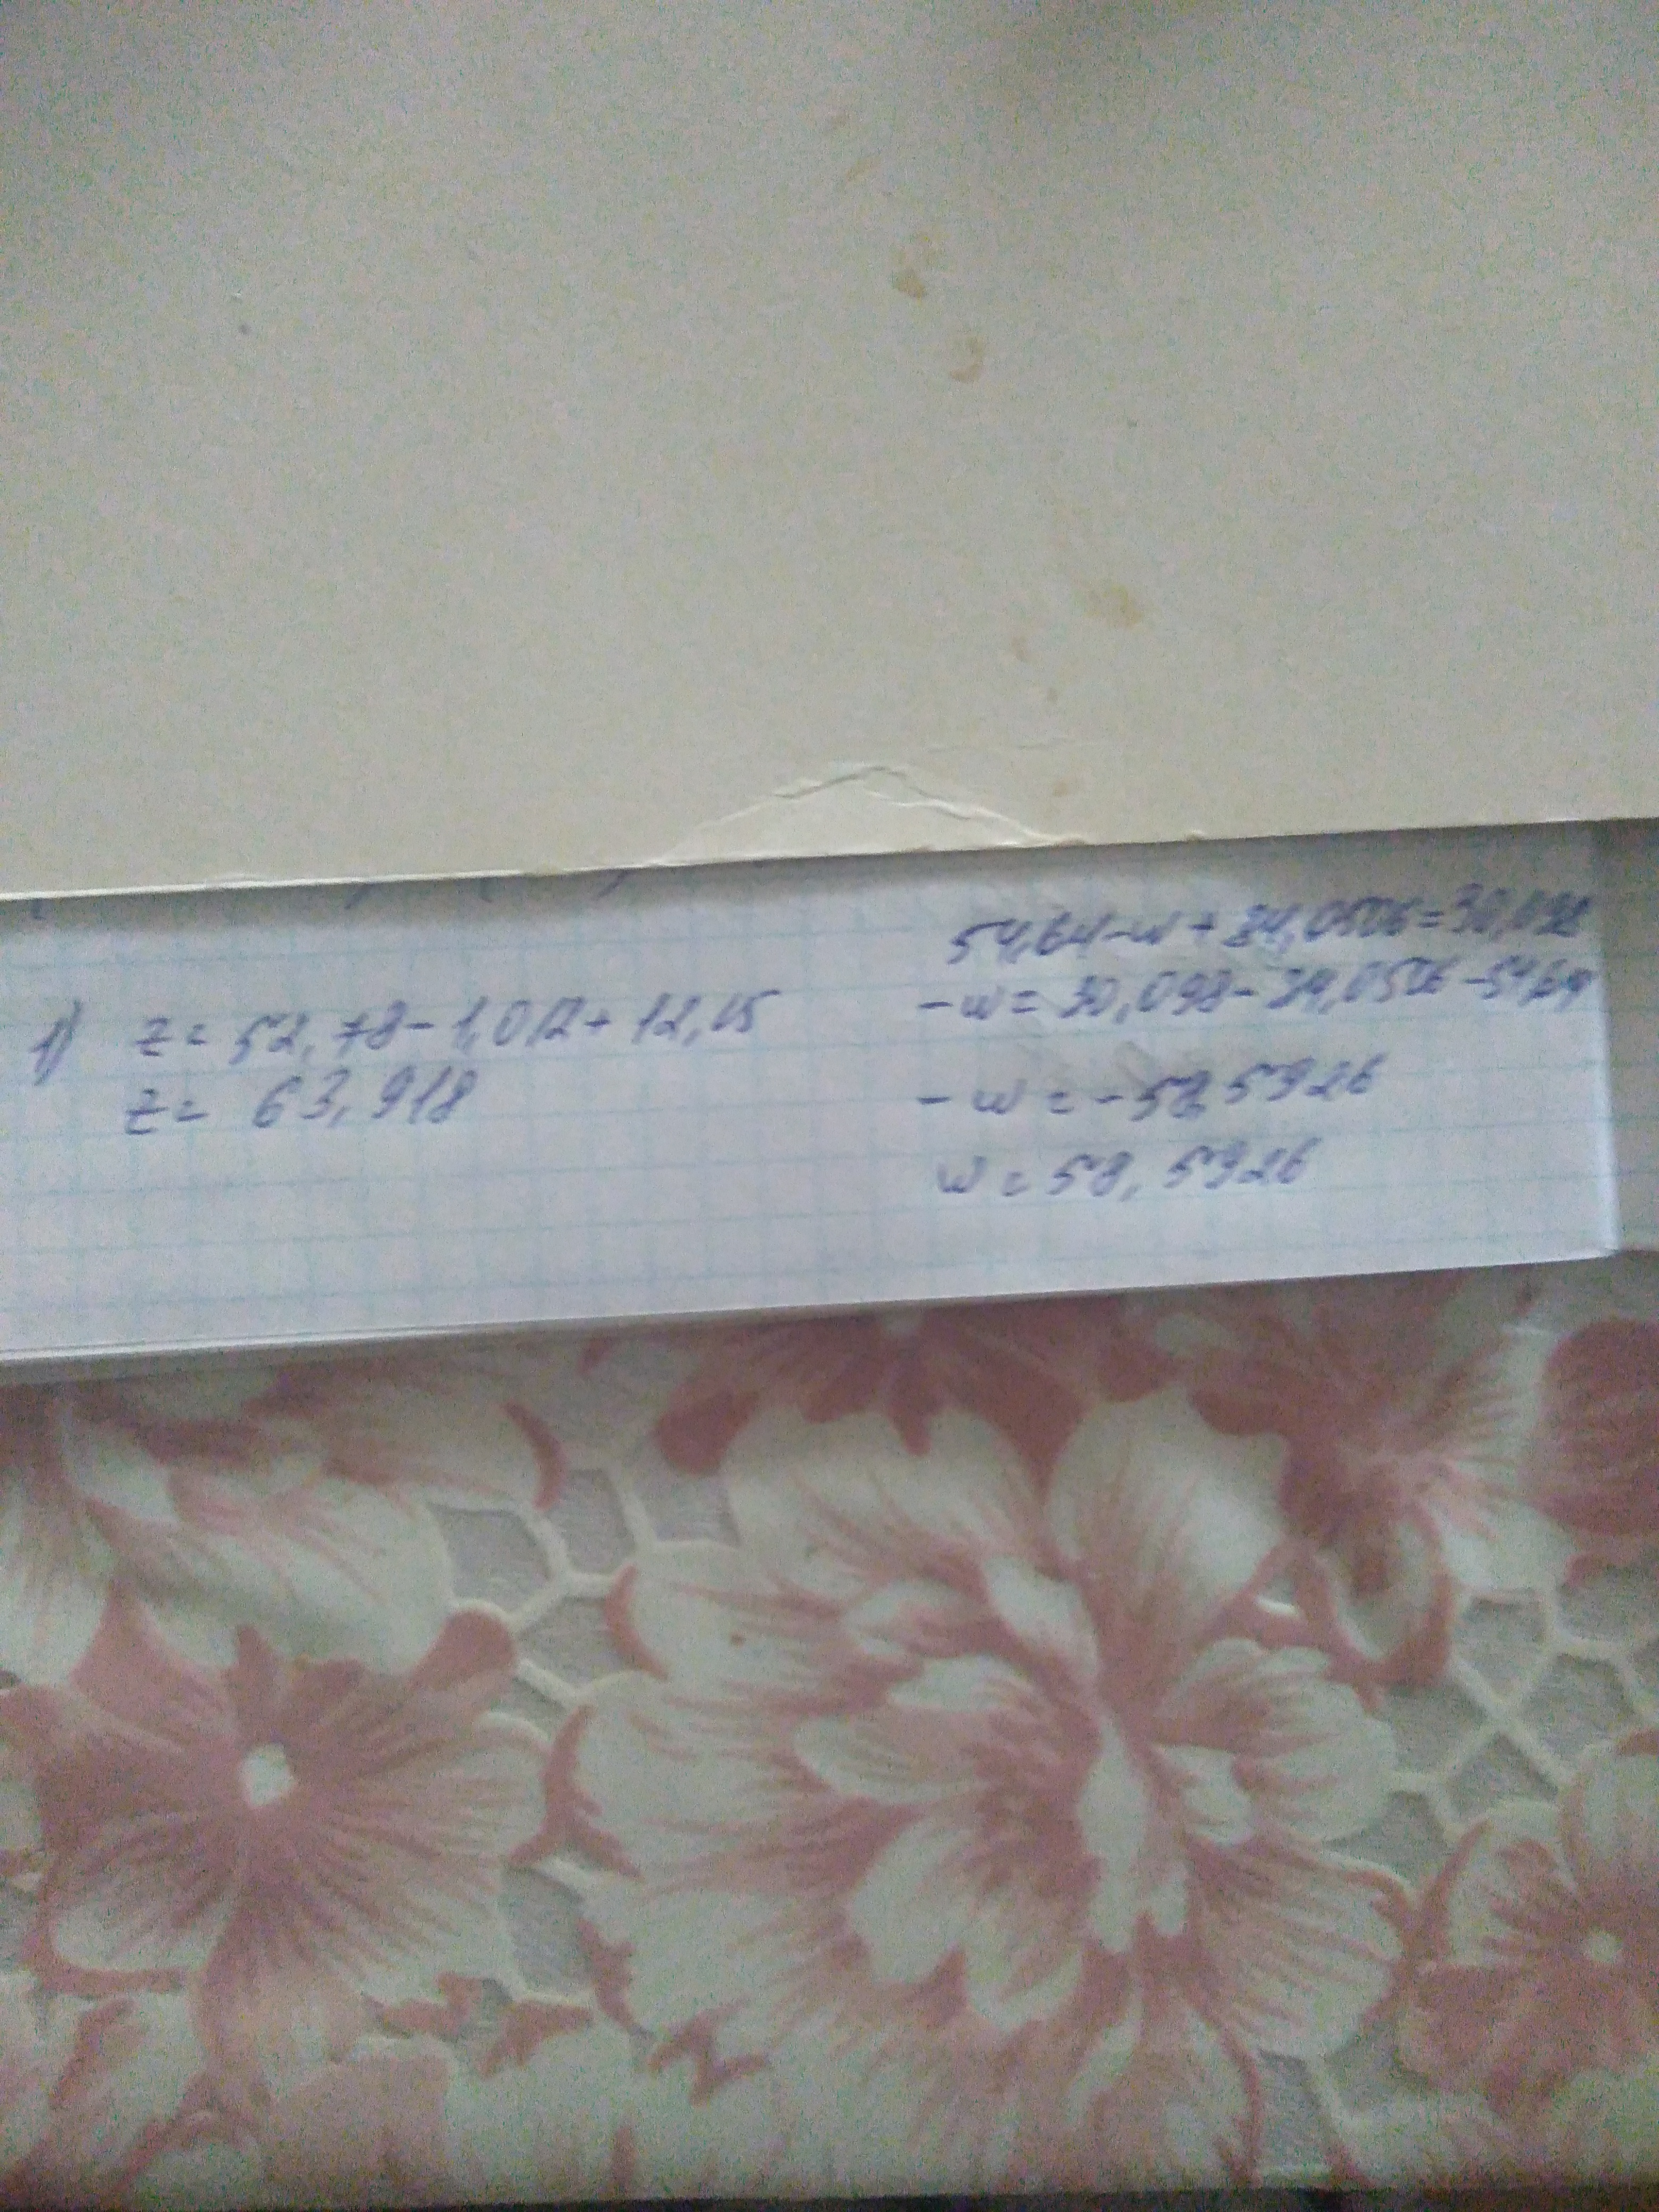 1) z = 52,78 - 1,012 + 12,15
z = 63,918
54,64 - w + 34,0506 = 30,098
- w = 30,098 - 34,0506 - 54,64
- w = - 58,5926
w = 58,5926